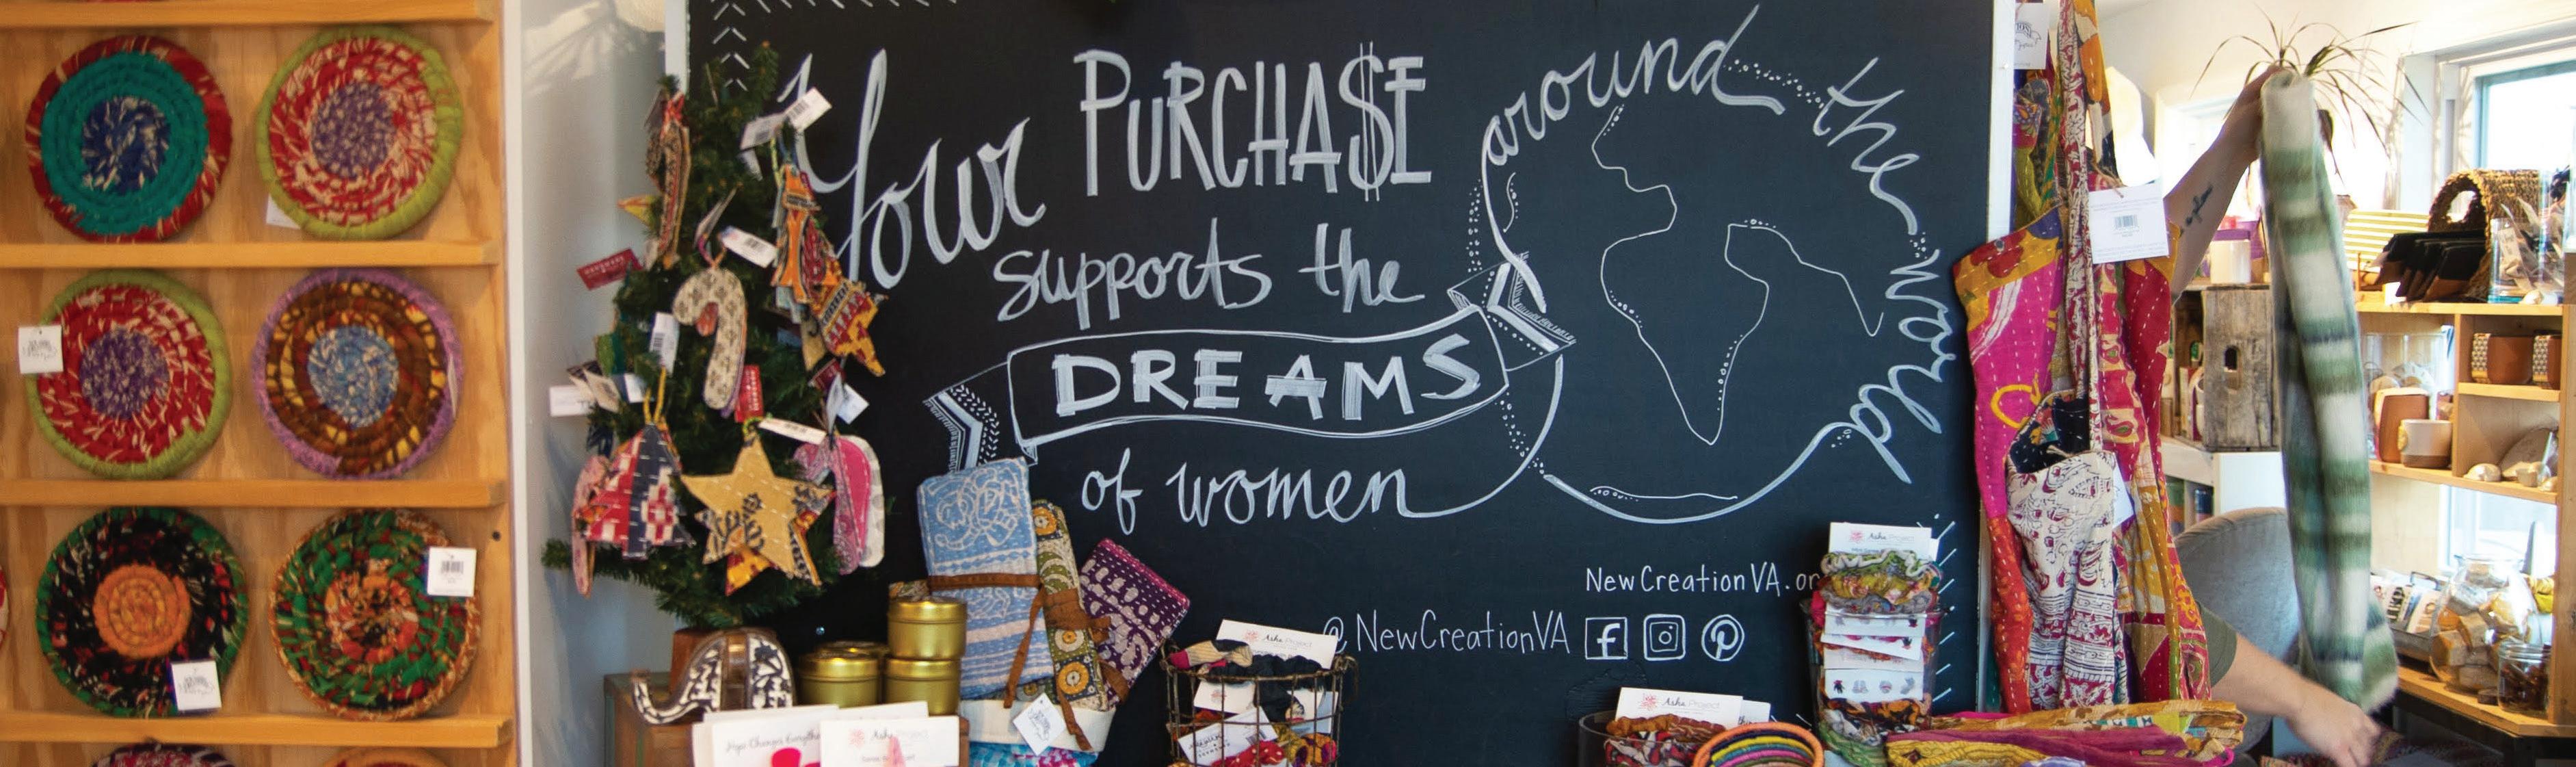 Your PURCHA$E
supports the
DREAMS
of women
around the world
NewCreationVA.or
@NewCreationVA
Asha Project
Asha Project
Asha Project
Asha Project
Hope Changes Everything